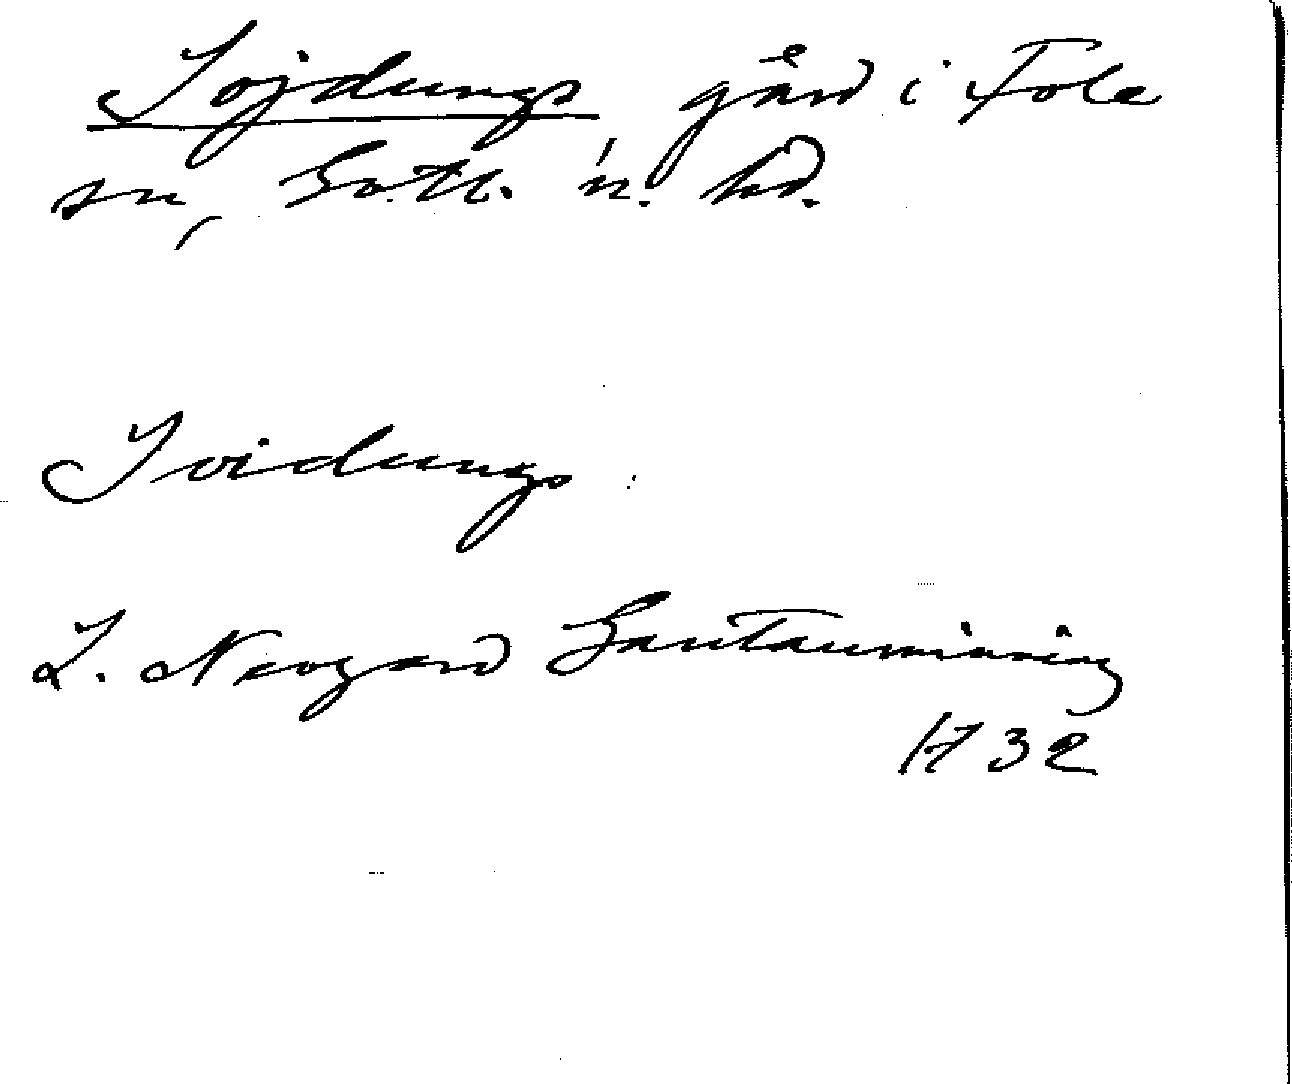 Sojdungs gård i Fole
sn, Gotl. n. hd.
Soidungs
L. Neogard Gautauminning
1732